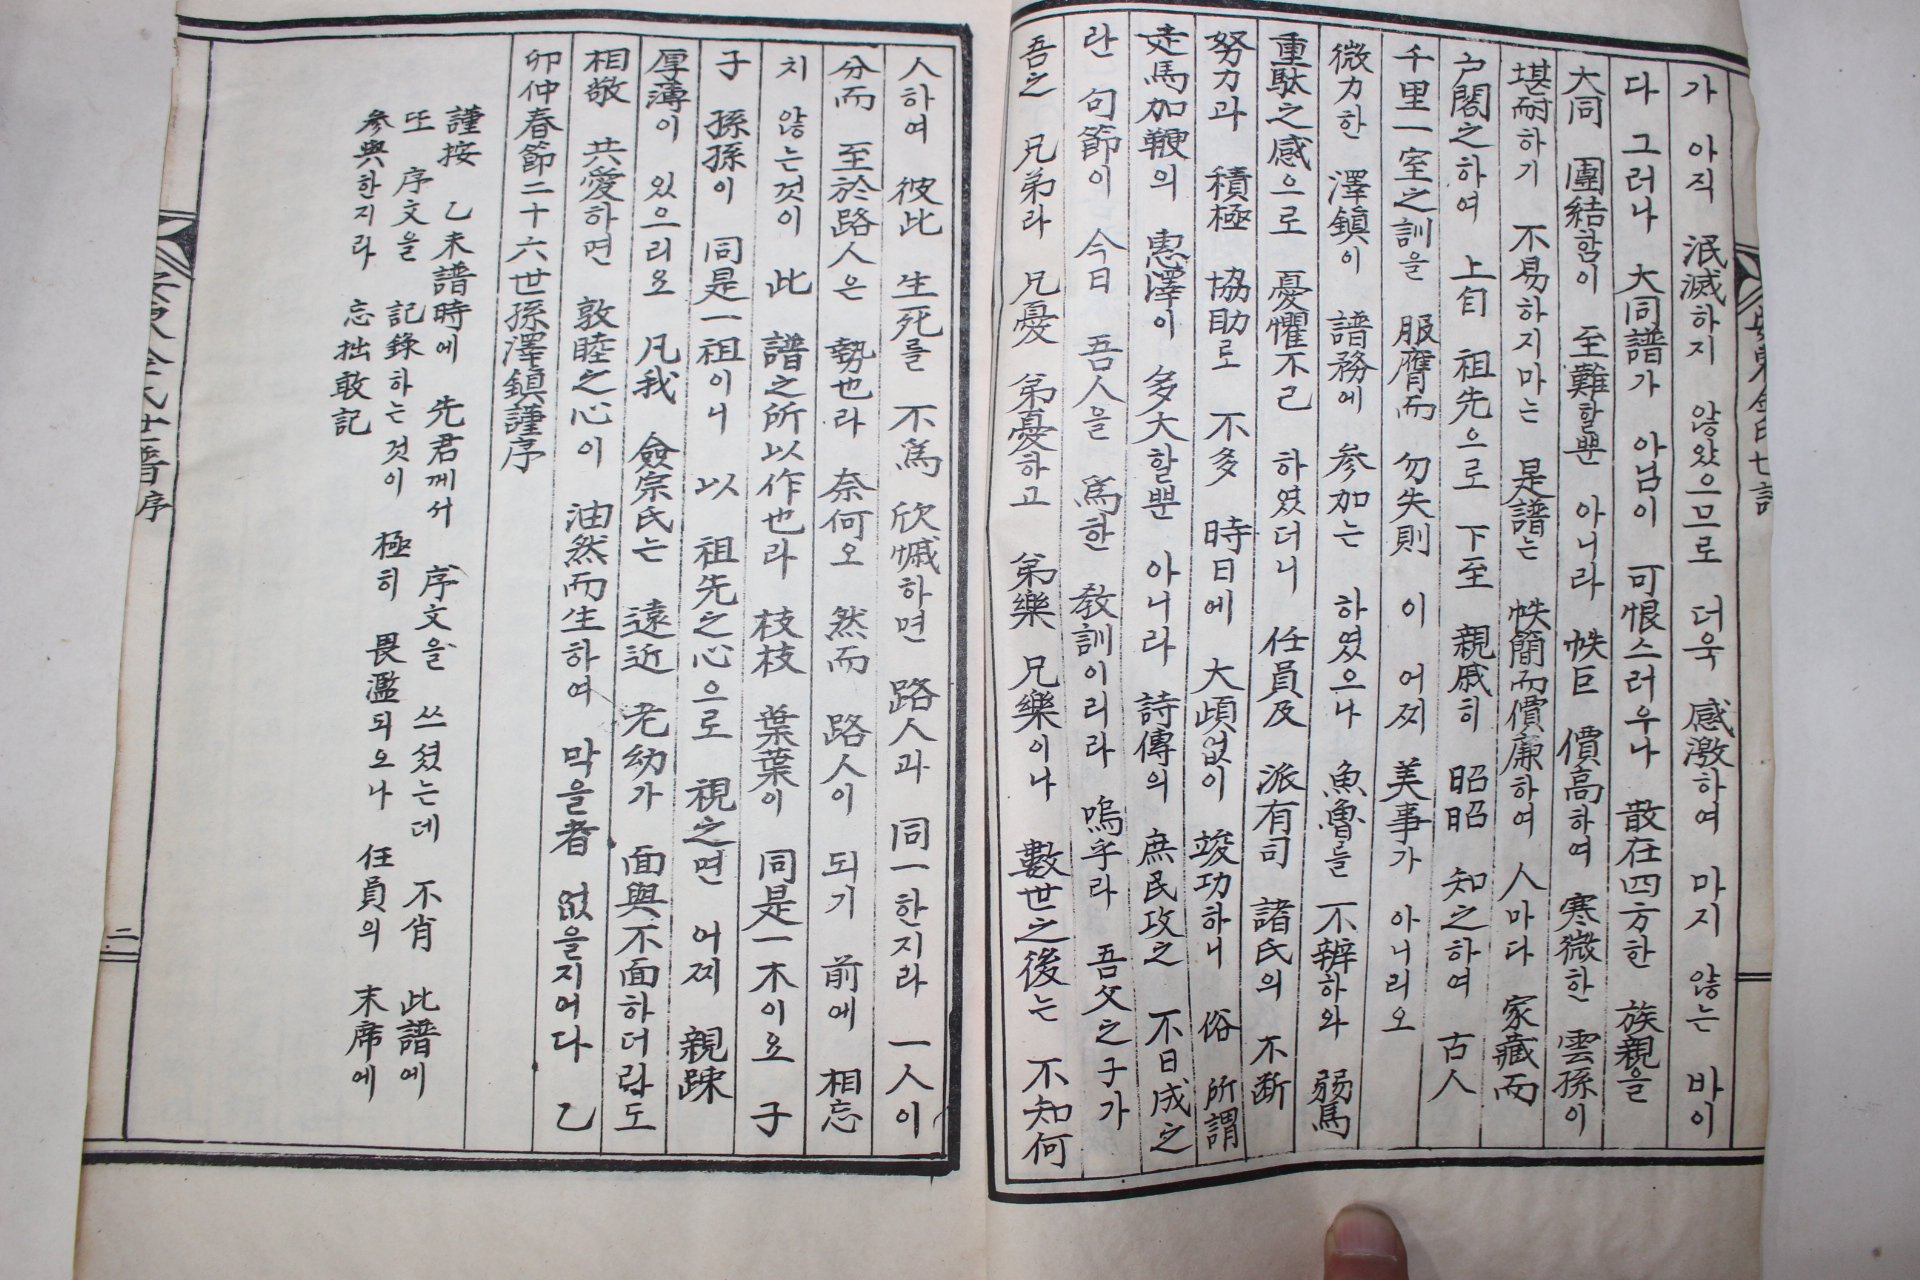 가 아직 泯滅하지 않았으므로 더욱 感激하여 마지 않는 바이
다 그러나 大同譜가 아님이 可恨스러우나 散在四方한 族親을
大同 團結함이 至難할뿐 아니라 帙巨 價高하여 寒微한 雲孫이
堪耐하기 不易하지마는 是譜는 帙簡而價廉하여 人마다 家藏而
戶閣之하여 上自 祖先으로 下至 親戚히 昭昭 知之하여 古人
千里一室之訓을 服膺而 勿失則 이 어찌 美事가 아니리오
微力한 澤鎭이 譜務에 參加는 하였으나 魚魯를 不辨하와 弱馬
重駄之感으로 憂懼不己 하였더니 任員及 派有司 諸氏의 不断
努力과 積極 協助로 不多 時日에 大頉없이 竣功하니 俗 所謂
走馬加鞭의 惠澤이 多大할뿐 아니라 詩傳의 庶民攻之 不日成之
란 句節이 今日 吾人을 爲한 敎訓이리라 嗚乎라 吾父之子가
吾之 兄弟라 兄憂 弟憂하고 弟樂 兄樂이나 數世之後는 不知何
人하여 彼此 生死를 不爲 欣慽하면 路人과 同一한지라 一人이
分而 至於路人은 勢也라 奈何오 然而 路人이 되기 前에 相忘
치 않는것이 此 譜之所以作也라 枝枝 葉葉이 同是一木이요 子
子 孫孫이 同是一祖이니 以 祖先之心으로 視之면 어찌 親踈
厚薄이 있으리요 凡我 僉宗氏는 遠近 老幼가 面與不面하더람도
相敬 共愛하면 敦睦之心이 油然而生하여 막을者 없을지어다 乙
卯仲春節二十六世孫澤鎭謹序
謹按 乙未譜時에 先君께서 序文을 쓰셨는데 不肖 此譜에
또 序文을 記錄하는것이 極히 畏濫되오나 任員의 末席에
參與한지라 忘拙敢記
氏世譜序
二